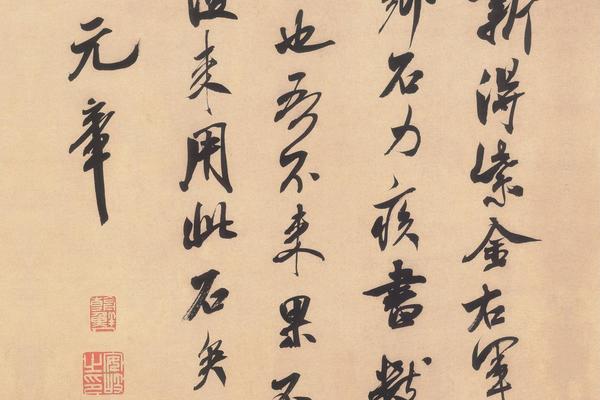 新得紫金右軍
鄉石力疾書數
也吾不来果不
来用此石矣
元章